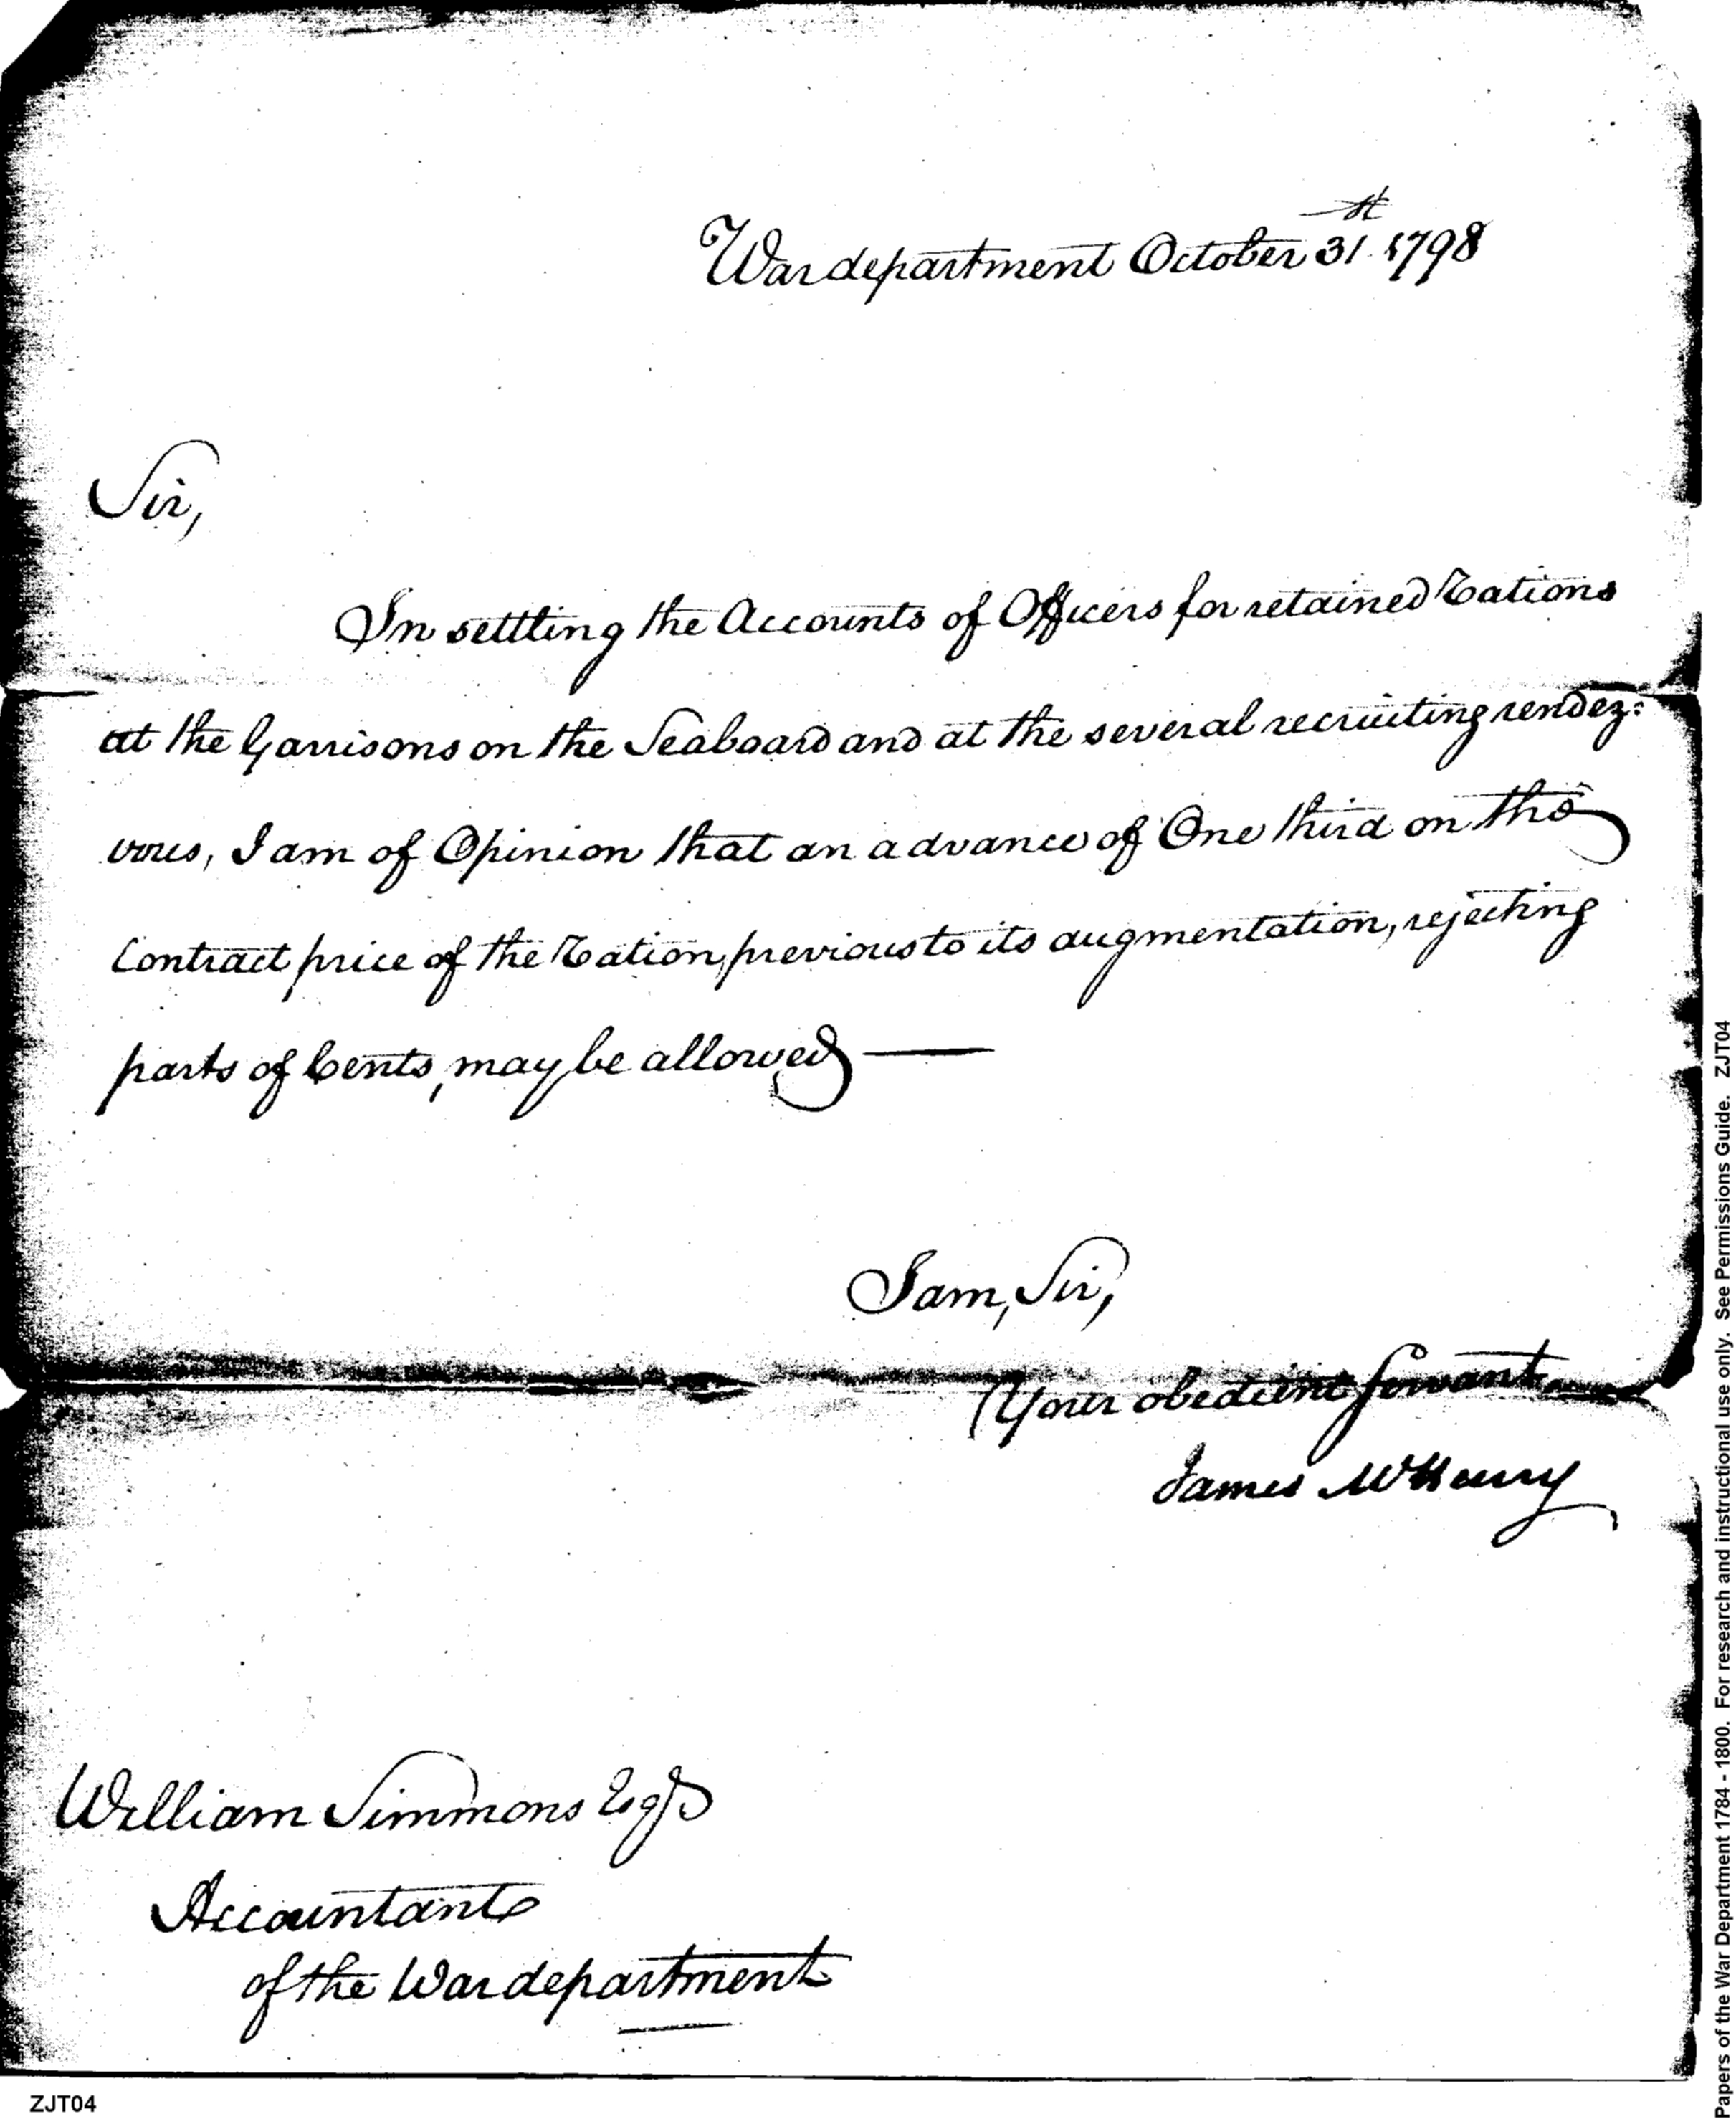 War department October 31st 1798
Sir,
In settling the Accounts of Officers for retained Rations
at the Garrisons on the Seaboard and at the several recruiting rendez=
vous, I am of Opinion that an advance of One third on the
Contract price of the Ration, previous to its augmentation, rejecting
parts of Cents, may be allowed —
I am, Sir,
Your obedient Servant
James McHenry
William Simmons Esqr
Accountant
of the War department
ZJT04
Papers of the War Department 1784 - 1800. For research and instructional use only. See Permissions Guide. ZJT04